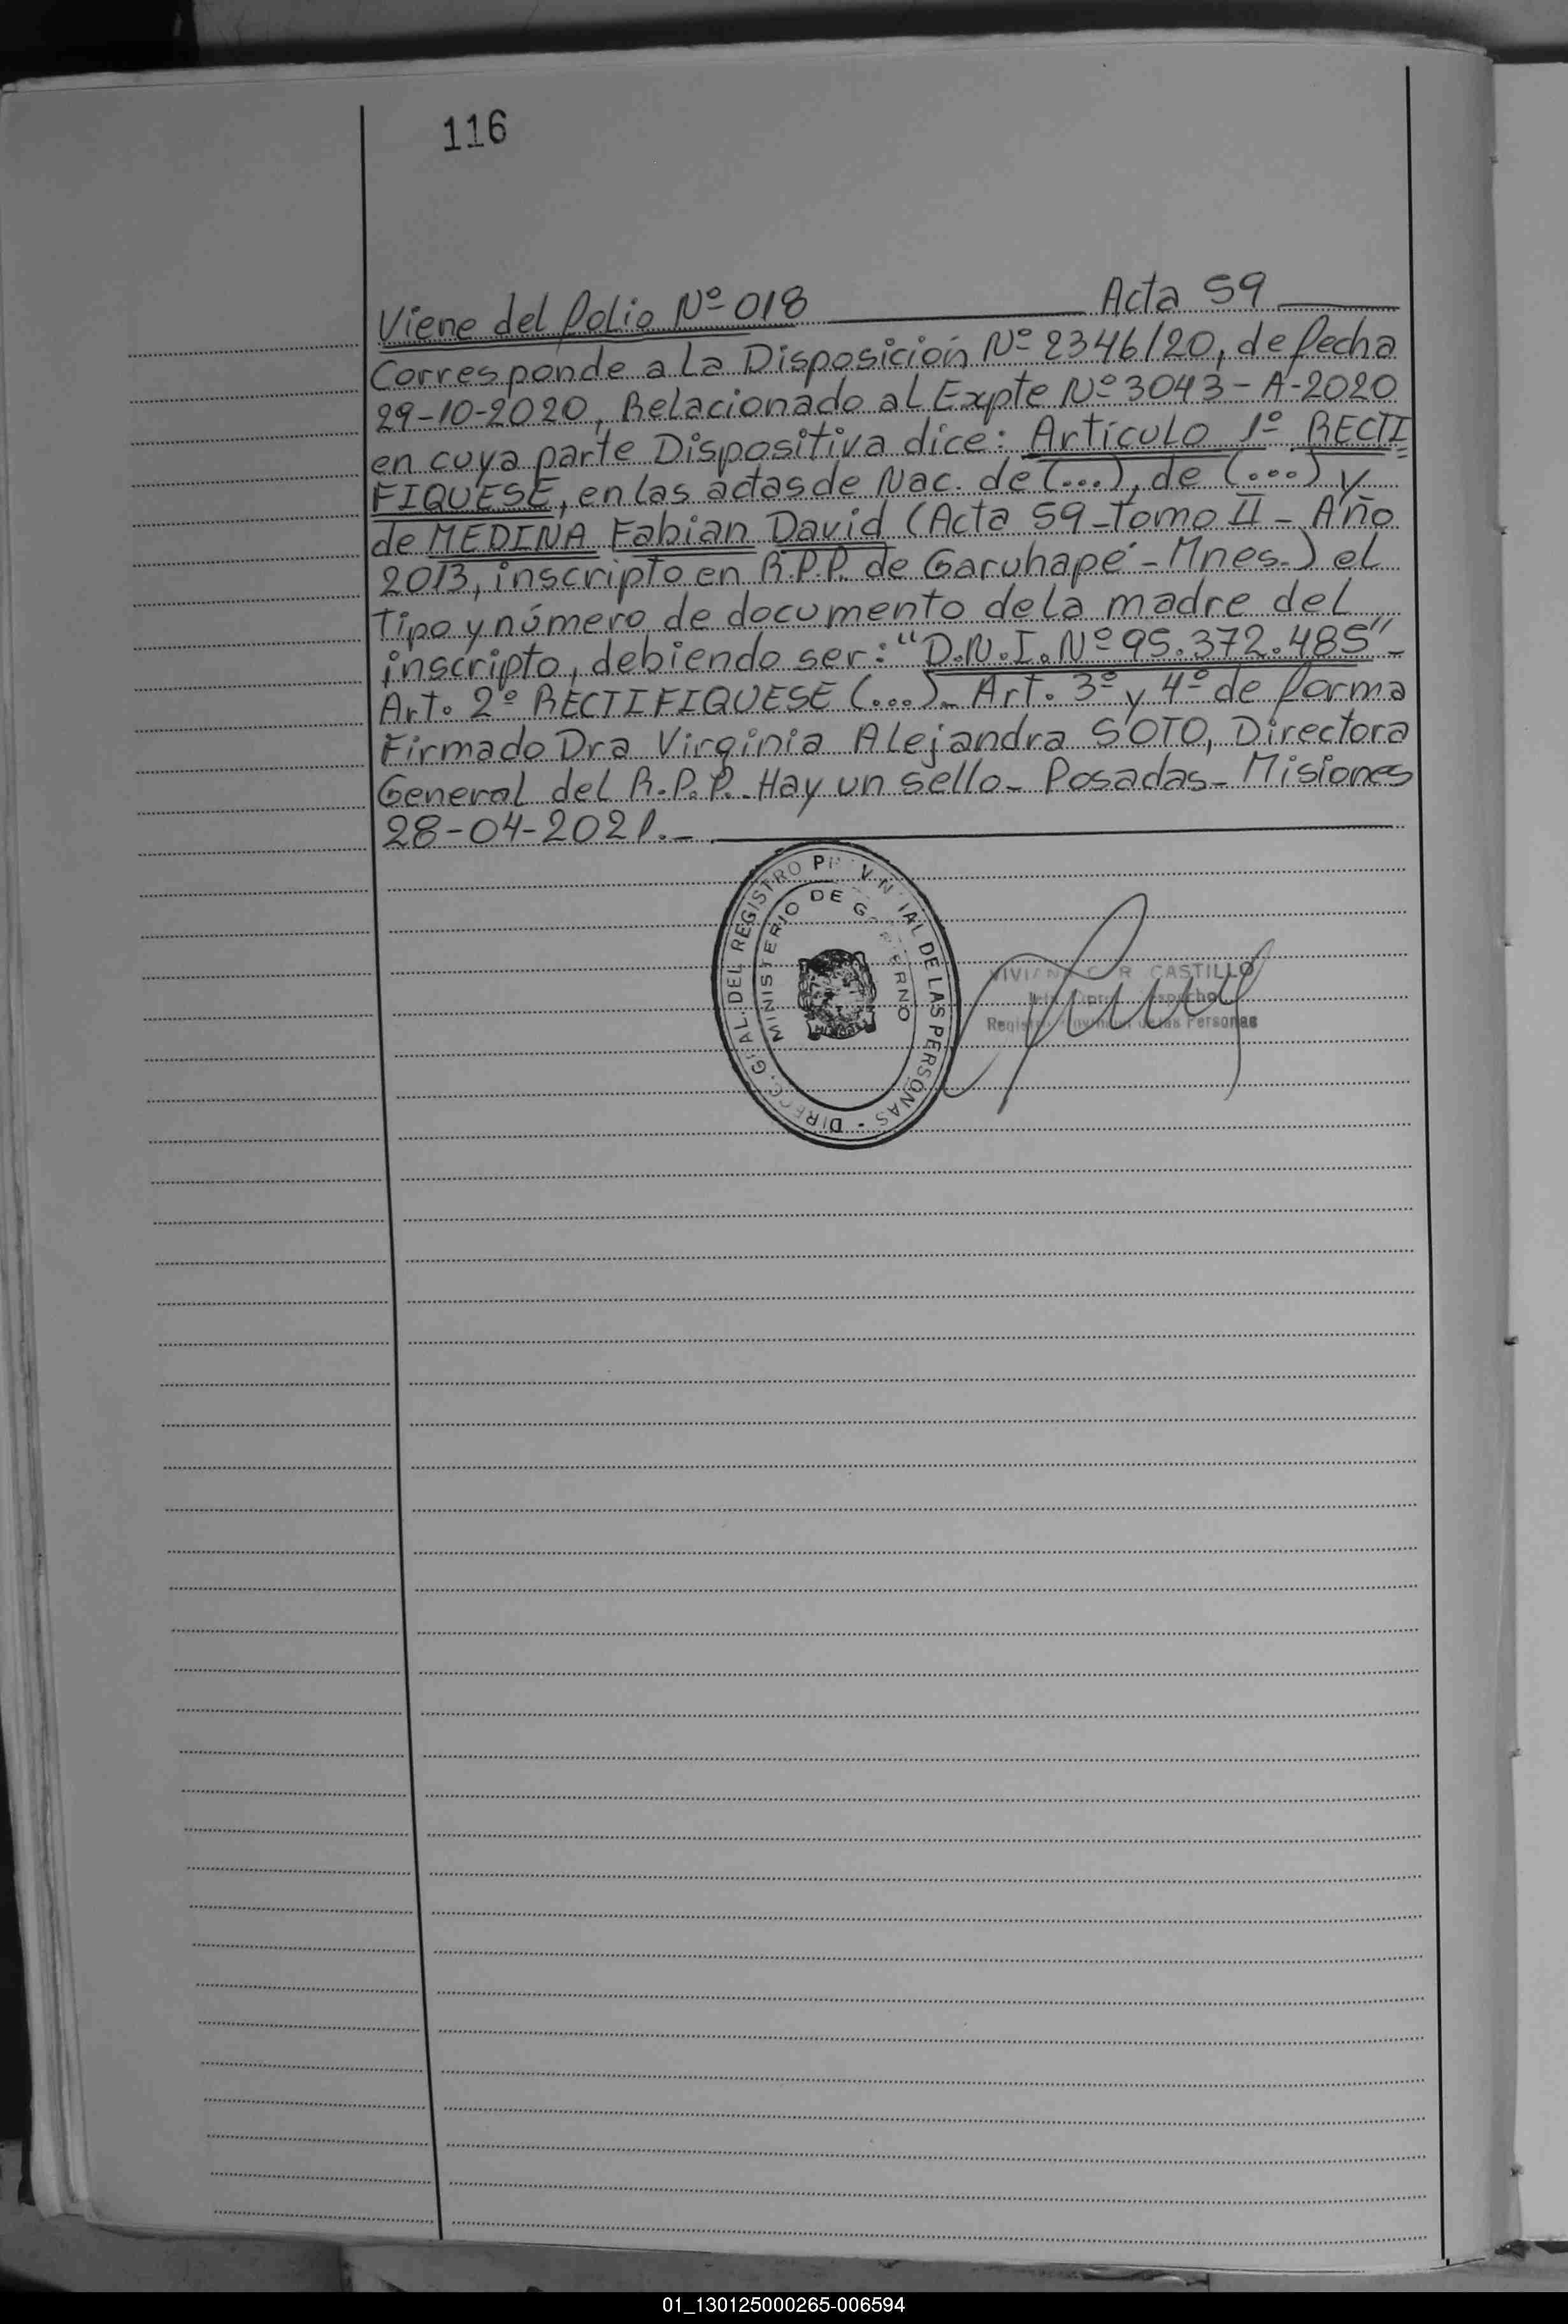 116
Viene del folio Nº 018 Acta 59
Corresponde a la Disposición Nº 2346/20, de fecha
29-10-2020, Relacionado al Expte Nº 3043-A-2020
en cuya parte Dispositiva dice: Artículo 1º RECTI
FIQUESE, en las actas de Nac. de (...), de (...) y
de MEDINA Fabian David (Acta 59-Tomo II - Año
2013, inscripto en R.P.P. de Garuhapé - Mnes.) el
Tipo y número de documento de la madre del
inscripto, debiendo ser: "D.N.I. Nº 95.372.485"-
Art. 2º RECTIFIQUESE (...)- Art. 3º y 4º de forma
Firmado Dra Virginia Alejandra SOTO, Directora
General del R.P.P.- Hay un sello- Posadas- Misiones
28-04-2021.-
DIRECC. GRAL. DEL REGISTRO PROVINCIAL DE LAS PERSONAS -
MINISTERIO DE GOBIERNO
R CASTILLO
Despacho
Registro Provincial de las Personas
01_130125000265-006594